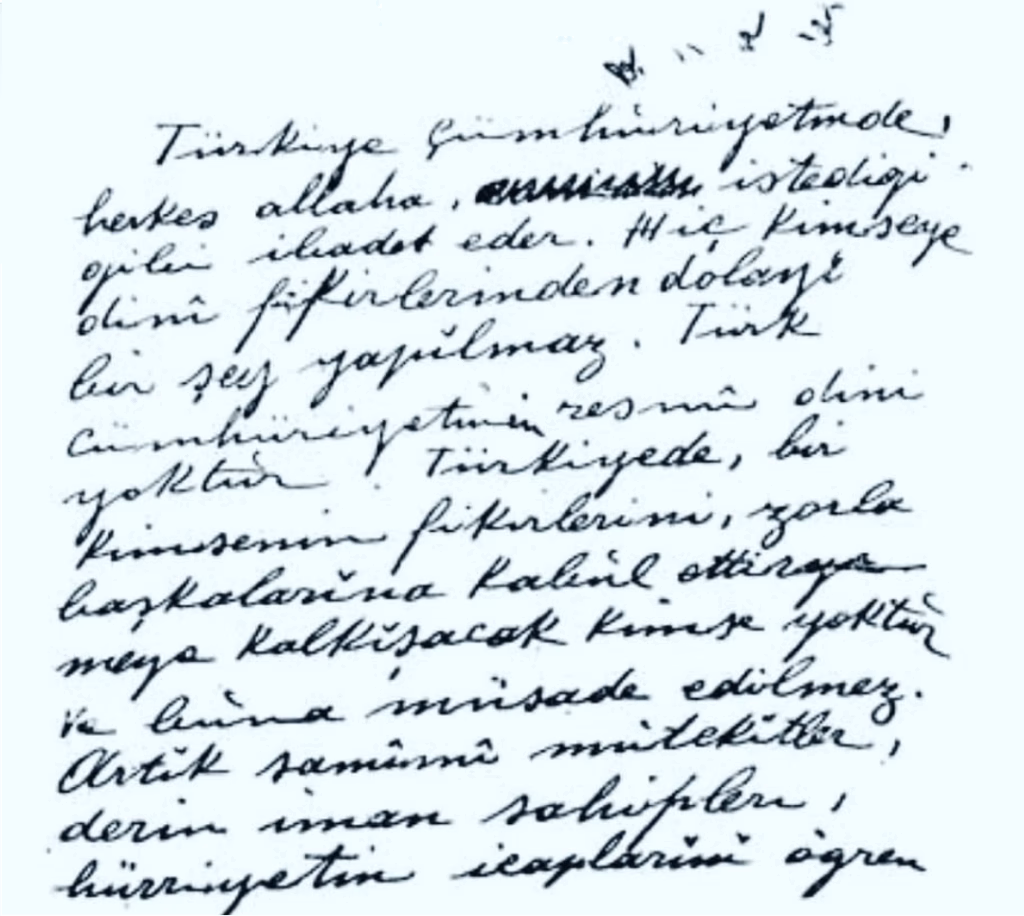 Türkiye Cümhüriyetinde,
herkes allaha, istediği
gibi ibadet eder. Hiç Kimseye
dinî fikirlerinden dolayî
bir şey yapîlmaz. Türk
cümhüriyetinin resmî dini
yoktur. Türkiyede, bir
Kimsenin fikirlerini, zorla
başkalarîna Kabul ettir
meye Kalkîşacak Kimse yoktur
ve buna müsade edilmez.
Artîk samimî mütekitler,
derin iman sahipleri,
hürriyetin icaplarînî öğren